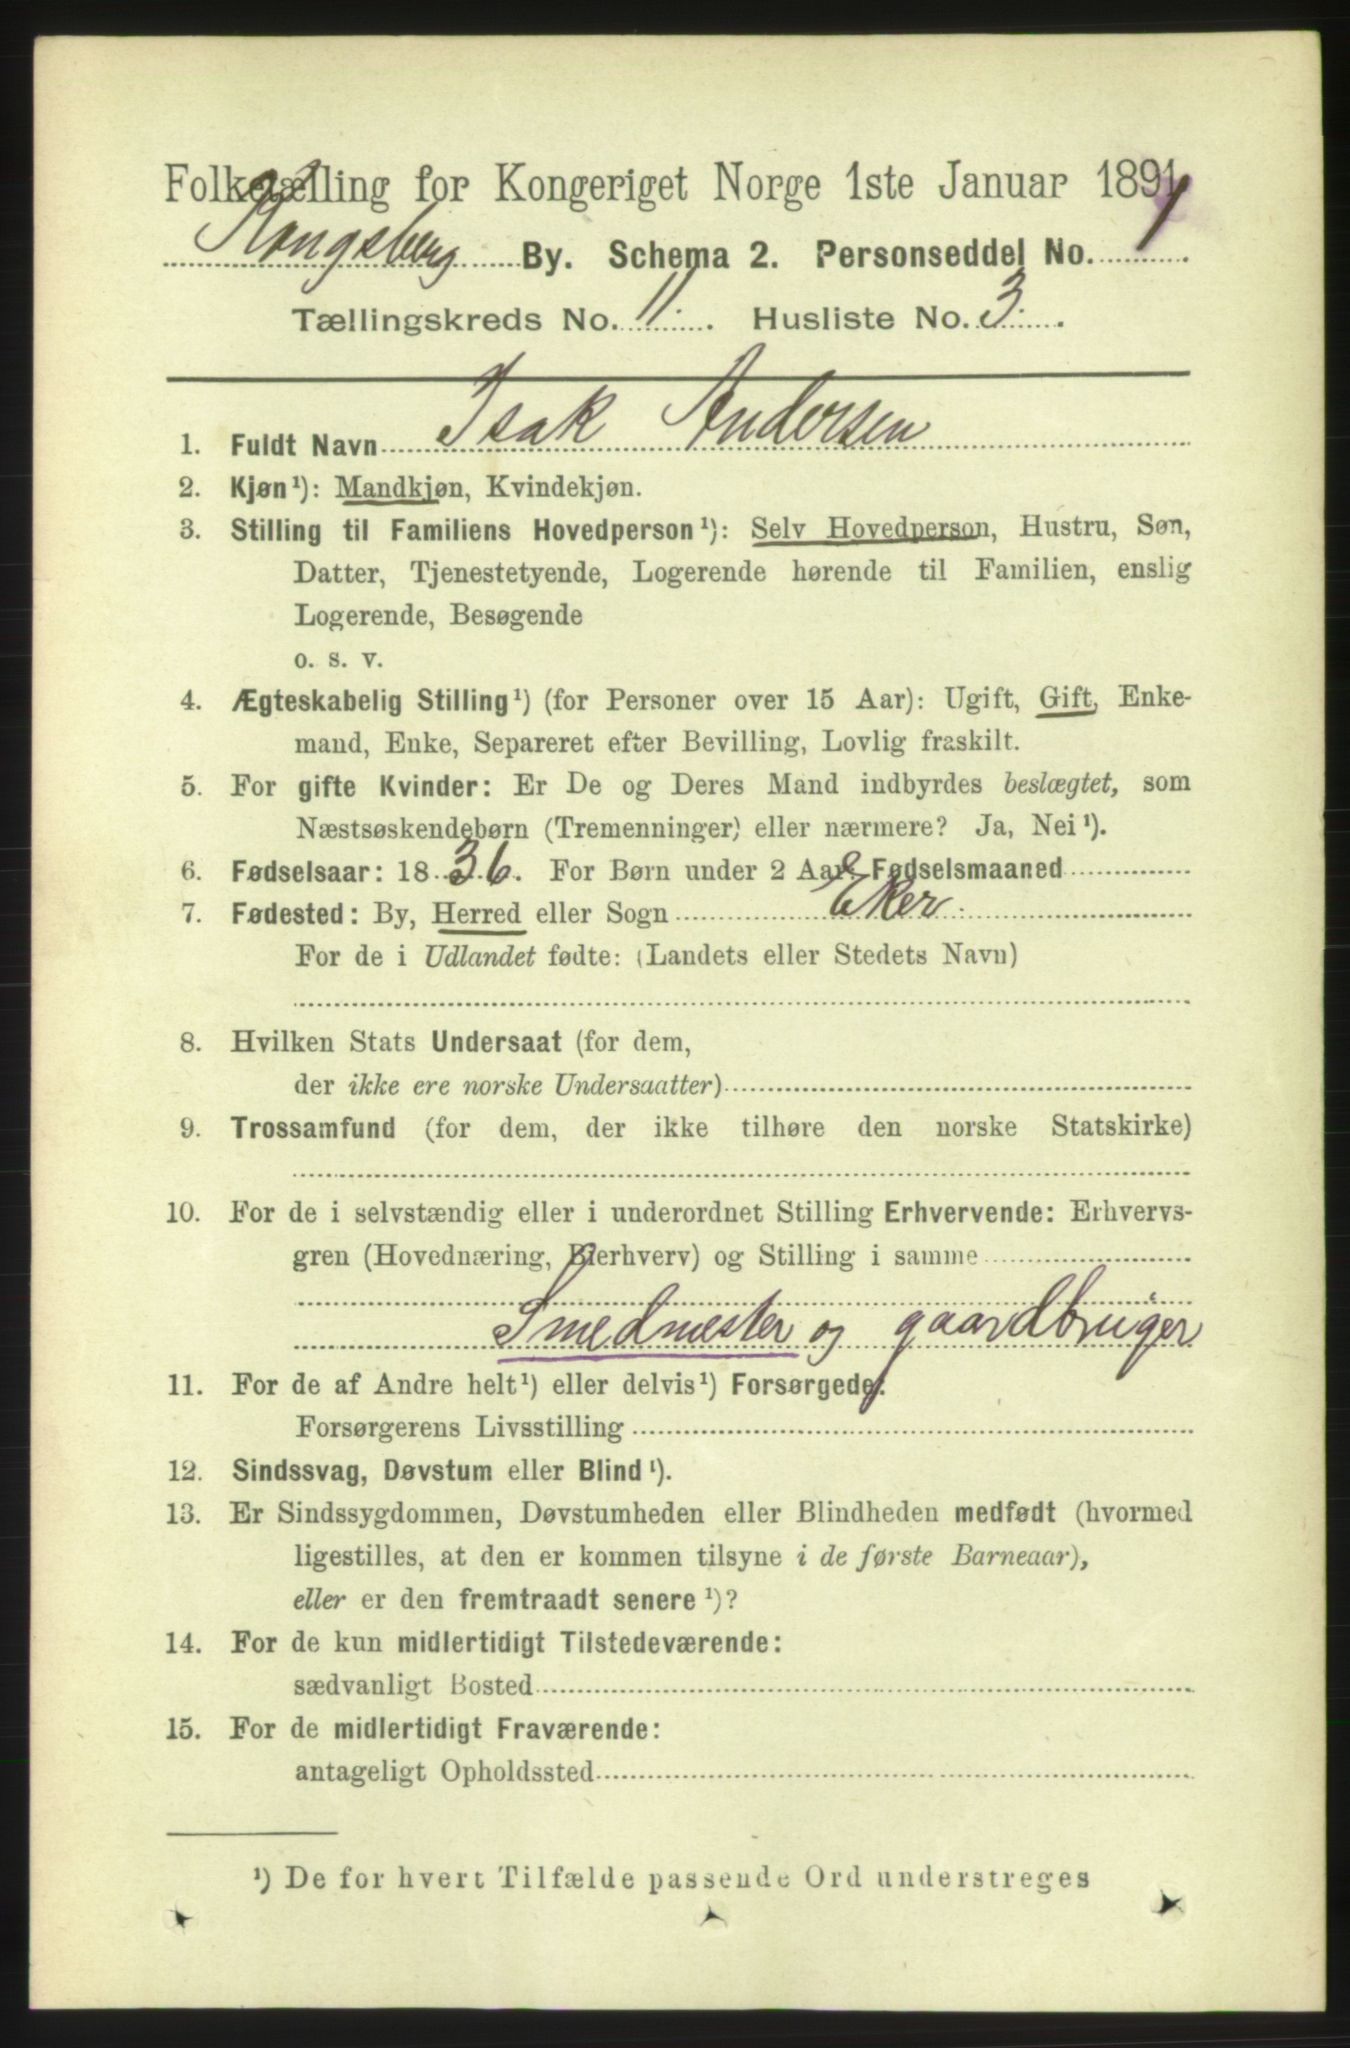 Folketælling for Kongeriget Norge 1ste Januar 1891.
Kongsberg By. Schema 2. Personseddel No. 1.
Tællingskreds No. 11. Husliste No. 3.
1. Fuldt Navn Isak Andersen
2. Kjøn¹): Mandkjøn, Kvindekjøn.
3. Stilling til Familiens Hovedperson¹): Selv Hovedperson, Hustru, Søn,
Datter, Tjenestetyende, Logerende hørende til Familien, enslig
Logerende, Besøgende
o. s. v.
4. Ægteskabelig Stilling¹) (for Personer over 15 Aar): Ugift, Gift, Enke-
mand, Enke, Separeret efter Bevilling, Lovlig fraskilt.
5. For gifte Kvinder: Er De og Deres Mand indbyrdes beslægtet, som
Næstsøskendebørn (Tremenninger) eller nærmere? Ja, Nei¹).
6. Fødselsaar: 1836. For Børn under 2 Aar: Fødselsmaaned
7. Fødested: By, Herred eller Sogn Eker
For de i Udlandet fødte: (Landets eller Stedets Navn)
8. Hvilken Stats Undersaat (for dem,
der ikke ere norske Undersaatter)
9. Trossamfund (for dem, der ikke tilhøre den norske Statskirke)
10. For de i selvstændig eller i underordnet Stilling Erhvervende: Erhvervs-
gren (Hovednæring, Bierhverv) og Stilling i samme
Smedmester og gaardbruger
11. For de af Andre helt¹) eller delvis¹) Forsørgede:
Forsørgerens Livsstilling
12. Sindssvag, Døvstum eller Blind¹).
13. Er Sindssygdommen, Døvstumheden eller Blindheden medfødt (hvormed
ligestilles, at den er kommen tilsyne i de første Barneaar),
eller er den fremtraadt senere¹)?
14. For de kun midlertidigt Tilstedeværende:
sædvanligt Bosted
15. For de midlertidigt Fraværende:
antageligt Opholdssted
¹) De for hvert Tilfælde passende Ord understreges